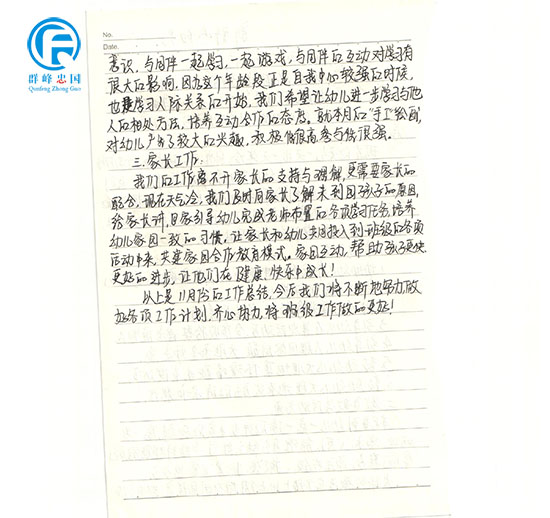 群峰忠国
Qunfeng Zhong Guo
No.
Date.
意识，与同伴一起学习，一起游戏，与同伴的互动对学习有
很大的影响，因为这个年龄段正是自我中心较强的时候，
也是学习人际关系的开始，我们希望让幼儿进一步学习与他
人的相处方法，培养互动合作的态度。就本月的“手工绘画”，
对幼儿产生了较大的兴趣，积极性很高参与性很强。
三.家长工作：
我们的工作离不开家长的支持与理解，更需要家长的
配合，现在天气冷，我们及时向家长了解未到园孩子的原因，
给家长讲，回家引导幼儿完成老师布置的各项学习任务，培养
幼儿家园一致的习惯，让家长和幼儿共同投入到班级的各项
活动中来，共建家园合作教育模式。家园互动，帮助孩子更快
更好的进步，让他们在健康！快乐中成长！
以上是11月份的工作总结，今后我们将不断地努力，做
好各项工作计划，齐心协力，将班级工作做的更好！